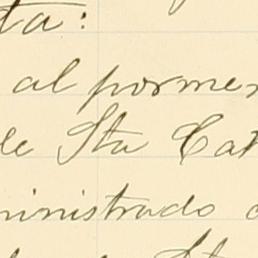 ta:
al pormen
de Sta Cat
ministrado